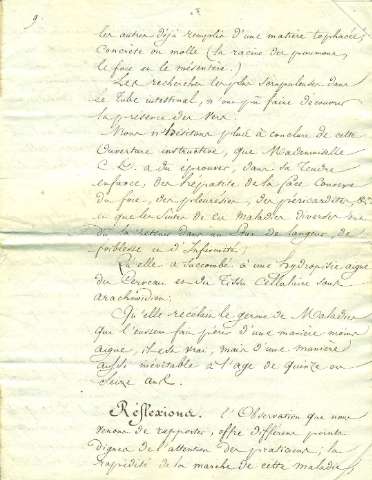 9.
les autres déjà remplis d'une matière tophacée,
Concrète ou molle (la racine des poumons,
le foie et le mésentère.)
Les recherches les plus scrupuleuses dans
le Tube intestinal, n'ont pu faire découvrir
la présence des Vers.
Nous n'hésitons plus à conclure de cette
Ouverture instructive, que Mademoiselle
C. L. a du éprouver, dans sa Tendre
enfance, des hépatites de la face Convexe
du foie, des pleurésies, des péricardites, &c.
et que les suites de ces maladies diverses
dans un état de langueur, de
faiblesse et d'Infirmité.
Qu'elle a succombé à une hydropisie aigue
du Cerveau et du Tissu Cellulaire sous
arachnoïdien;
Qu'elle recélait le germe de Maladies
qui l'eussent fait périr d'une manière moins
aigue, il est vrai, mais d'une manière
aussi inévitable à l'age de quinze ou
seize ans.
Réflexions. L'Observation que nous
venons de rapporter, offre différens points
dignes de l'attention des praticiens; la
rapidité de la marche de cette maladie,